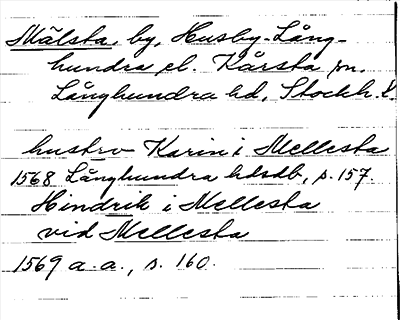 Mälsta, by, Husby-Lång-
hundra el. Kårsta sn.
Långhundra hd, Stockh. l.
hustrv Karin i Mellesta
1568 Långhundra hdsdb, s. 157.
Hindrik i Mellesta
vid Mellesta
1569 a.a., s. 160.